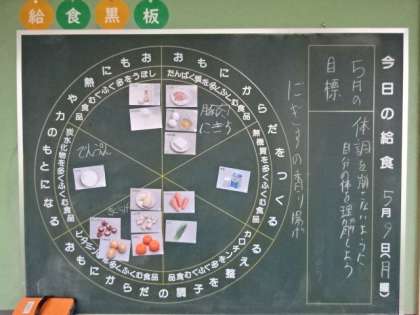 給食黒板
今日の給食 5月9日(月曜)
5月の
目標
体調を崩さないように、
自分の体を理解しよう
にぎすの香り揚げ
おもにからだをつくる
たんぱく質を多くふくむ食品
豚肉
にぎす
無機質を多くふくむ食品
おもにからだの調子を整える
カロチンを多くふくむ食品
ビタミンCを多くふくむ食品
おもに熱や力のもとになる
炭水化物を多くふくむ食品
でんぷん
しぼうを多くふくむ食品